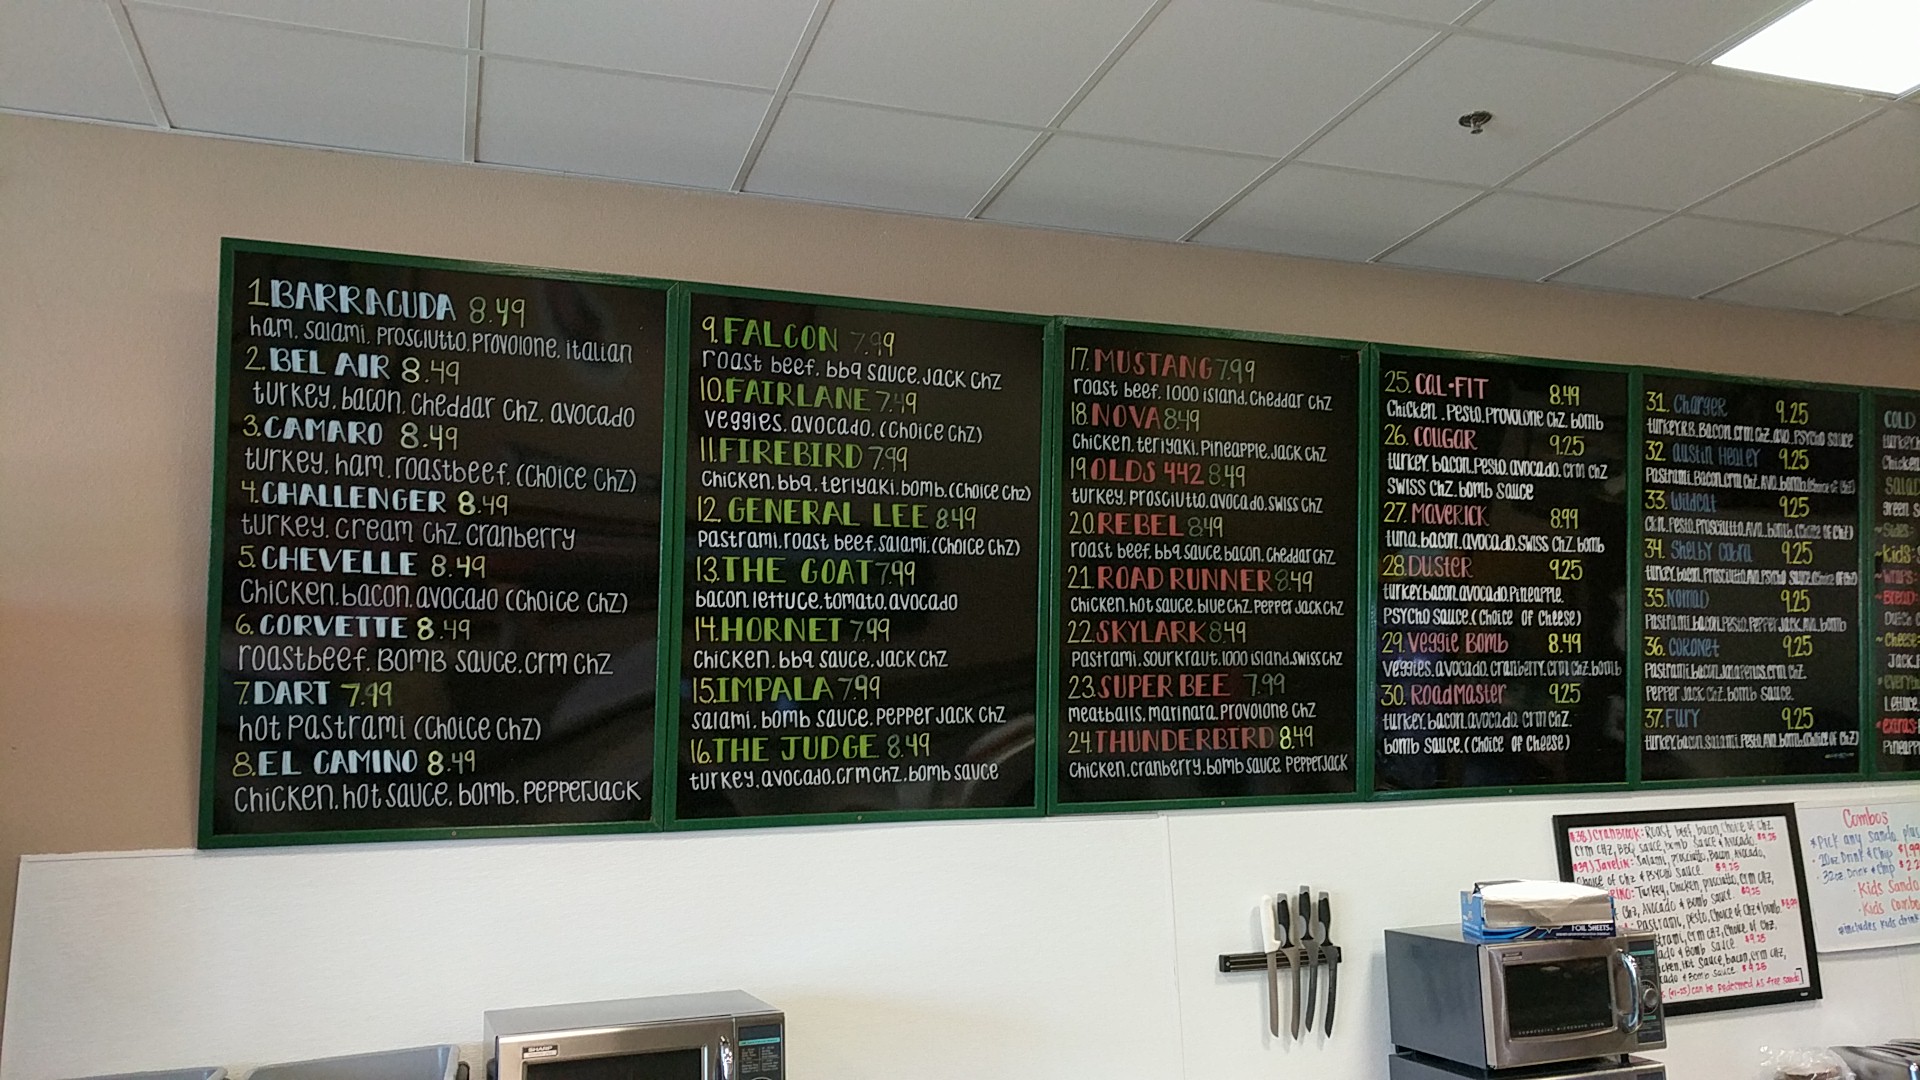 1. BARRACUDA 8.49
ham. salami. prosciutto. provolone. italian
2. BEL AIR 8.49
turkey. bacon. cheddar chz. avocado
3. CAMARO 8.49
turkey. ham. roastbeef. (choice chz)
4. CHALLENGER 8.49
turkey. cream chz. cranberry
5. CHEVELLE 8.49
chicken. bacon. avocado (choice chz)
6. CORVETTE 8.49
roastbeef. BOMB sauce. crm chz
7. DART 7.99
hot pastrami (choice chz)
8. EL CAMINO 8.49
chicken. hot sauce. bomb. pepperjack
9. FALCON 7.99
roast beef. bbq sauce. jack chz
10. FAIRLANE 7.49
veggies. avocado. (choice chz)
11. FIREBIRD 7.99
chicken. bbq. teriyaki. bomb. (choice chz)
12. GENERAL LEE 8.49
pastrami. roast beef. salami. (choice chz)
13. THE GOAT 7.99
bacon. lettuce. tomato. avocado
14. HORNET 7.99
chicken. bbq sauce. jack chz
15. IMPALA 7.99
salami. bomb sauce. pepper jack chz
16. THE JUDGE 8.49
turkey. avocado. crm chz. bomb sauce
17. MUSTANG 7.99
roast beef. 1000 island. cheddar chz
18. NOVA 8.49
chicken. teriyaki. pineapple. jack chz
19. OLDS 442 8.49
turkey. prosciutto. avocado. swiss chz
20. REBEL 8.49
roast beef. bbq sauce. bacon. cheddar chz
21. ROAD RUNNER 8.49
chicken. hot sauce. blue chz. pepper jack chz
22. SKYLARK 8.49
pastrami. sourkraut. 1000 island. swiss chz
23. SUPER BEE 7.99
meatballs. marinara. provolone chz
24. THUNDERBIRD 8.49
chicken. cranberry. bomb sauce. pepperjack
25. CAL-FIT 8.49
chicken. pesto. provolone chz. bomb
26. COUGAR 9.25
turkey. bacon. pesto. avocado. crm chz
swiss chz. bomb sauce
27. MAVERICK 8.99
tuna. bacon. avocado. swiss chz. bomb
28. DUSTER 9.25
turkey. bacon. avocado. pineapple.
psycho sauce. (choice of cheese)
29. Veggie Bomb 8.49
veggies. avocado. cranberry. crm chz. bomb
30. RoadMaster 9.25
turkey. bacon. avocado. crm chz.
bomb sauce. (choice of cheese)
31. Charger 9.25
turkey. R.B. Bacon. crm chz. avo. psycho sauce
32. Austin Healey 9.25
Pastrami. Bacon. crm chz. avo. bomb. (choice of chz)
33. Wildcat 9.25
ckn. pesto. prosciutto. avo. bomb. (choice of chz)
34. Shelby Cobra 9.25
turkey. bacon. prosciutto. avo. psycho sauce. (choice of chz)
35. Nomad 9.25
Pastrami. bacon. pesto. pepper jack. avo. bomb
36. Coronet 9.25
pastrami. bacon. jalapenos. crm chz.
pepper jack chz. bomb sauce.
37. Fury 9.25
turkey. bacon. salami. pesto. avo. bomb. (choice of chz)
COLD
Green S
~Sides:
~Kids:
~Wraps:
~Bread:
Dutch C
~Cheese
Jack.
Lettuce.
~extras:
Pineapp
#38) Cranbrook: Roast beef, bacon, choice of chz
crm chz, BBQ sauce, bomb sauce & Avocado. $9.25
#39) Javelin: Salami, prosciutto, Bacon, Avocado,
choice of chz & Psycho sauce. $9.25
RINO: Turkey, chicken, prosciutto, crm chz,
chz, Avocado & Bomb sauce. $9.25
Pastrami, pesto, choice of chz & bomb.
strami, crm chz, choice of chz,
ado & Bomb sauce $9.25
cken, Hot sauce, bacon, crm chz,
cado & Bomb sauce $9.25
(#1-25) can be redeemed as free sando
Combos
*Pick any sando, plu
· 20oz Drink & Chip $1.99
· 32oz Drink & Chip $2.2
· Kids Sando
· Kids Combo
*includes kids drink
FOIL SHEETS
SHARP